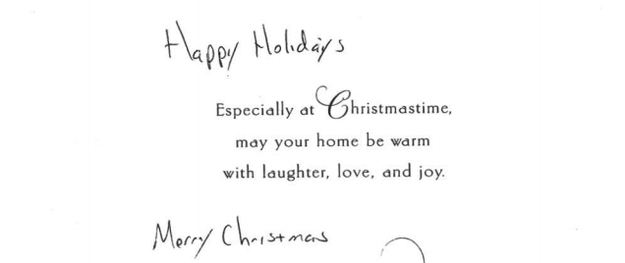 Happy Holidays
Especially at Christmastime,
may your home be warm
with laughter, love, and joy.
Merry Christmas